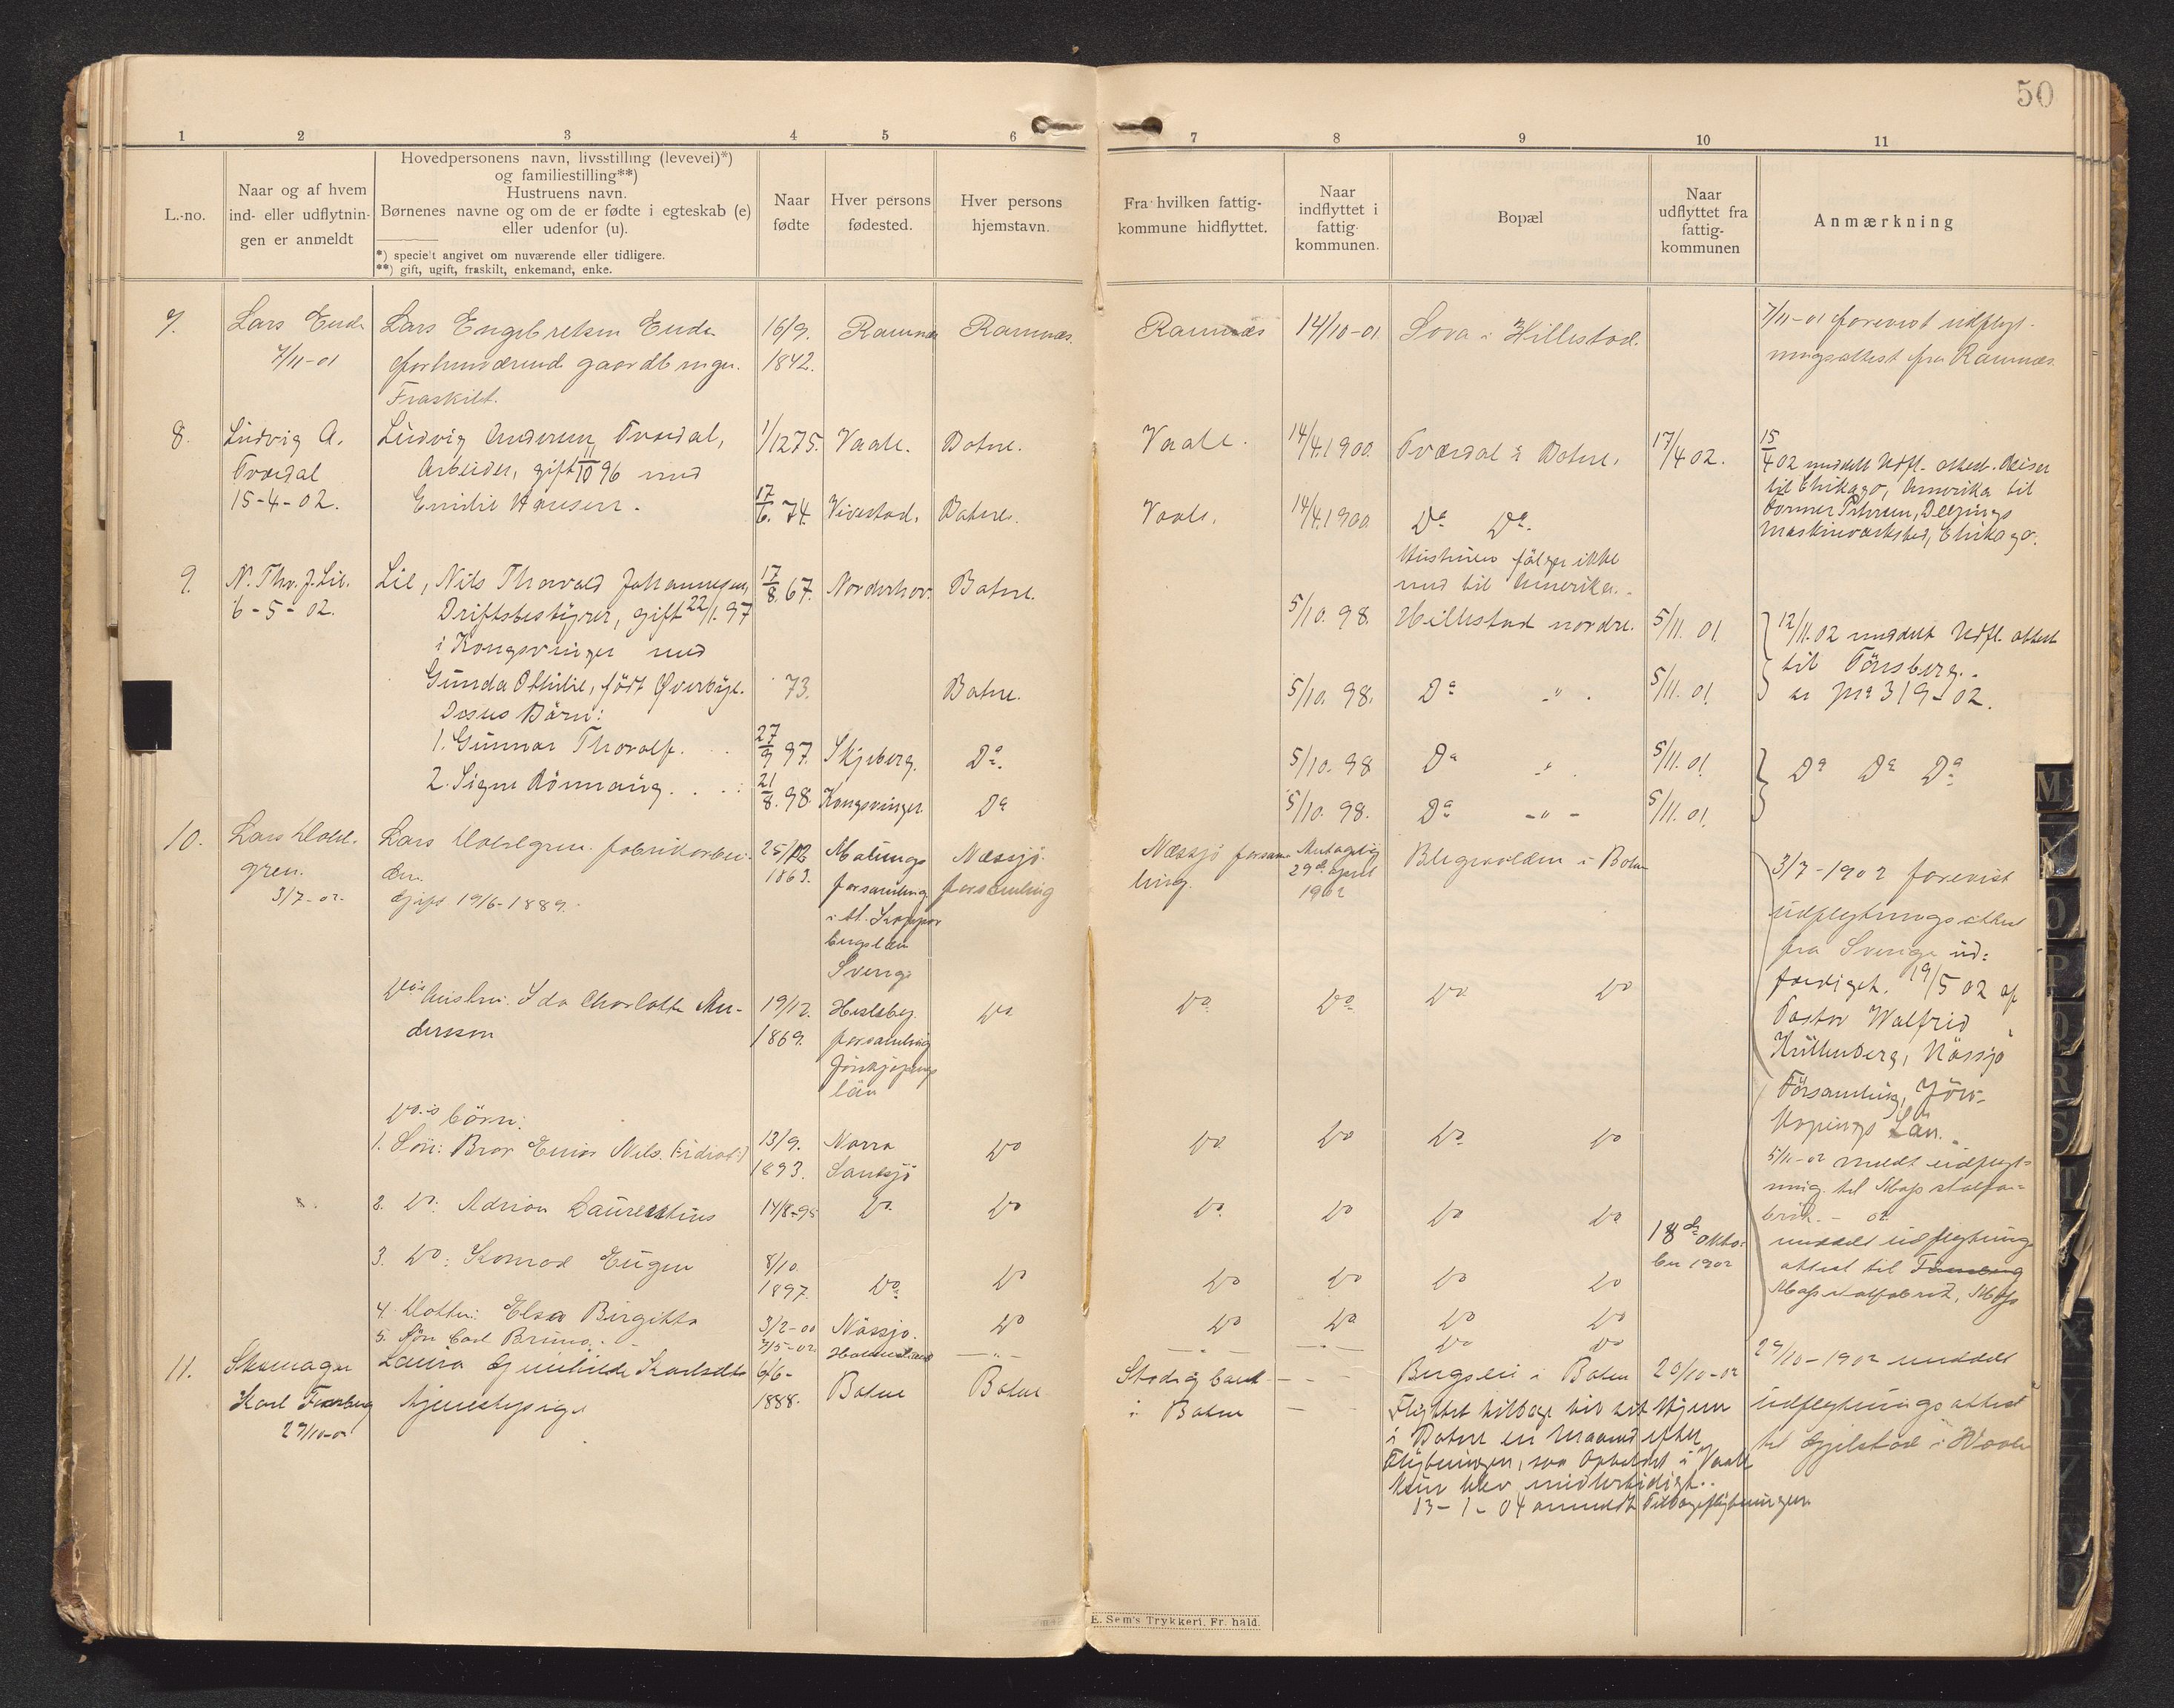 50
1
2
3
4
5
6
7
8
9
10
11
L.-no.
Naar og af hvem
ind- eller udflytnin-
gen er anmeldt
Hovedpersonens navn, livsstilling (levevei)*)
og familiestilling**)
Hustruens navn.
Børnenes navne og om de er fødte i egteskab (e)
eller udenfor (u).
*) specielt angivet om nuværende eller tidligere.
**) gift, ugift, fraskilt, enkemand, enke.
Naar
fødte
Hver persons
fødested.
Hver persons
hjemstavn.
Fra hvilken fattig-
kommune hidflyttet.
Naar
indflyttet i
fattig-
kommunen.
Bopæl
Naar
udflyttet fra
fattig-
kommunen
Anmærkning
7.
Lars Ende
7/11-01
Lars Engebretsen Ende
forhenværende gaardbruger.
Fraskilt.
16/9.
1842.
Ramnæs
Ramnæs.
Ramnæs
14/10-01
Sova i Hillestad.
7/11-01 forevist udflyt-
ningsattest fra Ramnæs.
8.
Ludvig A.
Tværdal
15-4-02.
Ludvig Andersen Tværdal,
Arbeider, gift 11/10 96 med
Emilie Hansen.
1/12 75.
17/6. 74.
Vaale.
Vivestad.
Botne.
Botne.
Vaale.
Vaale.
14/4.1900.
14/4.1900
Tværdal i Botne.
Do Do.
Hustruen følger ikke
med til Amerika.
17/4 02.
15/4 02 meddelt Udfl. attest. Reiser
til Chikago, Amerika til
Maskinværksted, Chikago.
9.
N. Thv. J. Lie.
6-5-02.
Lie, Nils Thorvald Johannesen,
Driftsbestyrer, gift 22/1.97
i Kongsvinger med
Gunda Othilie, født Øverbye.
Disses Børn:
1. Gunnar Thoralf.
2. Signe Rönnaug.
17/8. 67.
73.
27/9 97.
21/8. 98.
Norderhov.
Skjeberg.
Kongsvinger
Botne.
Botne.
Do.
Do
5/10. 98.
5/10. 98.
5/10. 98
5/10. 98.
Hillestad nordre.
Do -"-
Do -"-
Do -"-
5/11. 01.
5/11. 01.
5/11. 01.
5/11. 01.
12/11.02 meddelt Udfl. attest
til Tönsberg.
se jno 319-02.
Do Do Do
10.
Lars Dahl-
gren.
3/7-02.
Lars Dahlgren. fabrikarbei-
der.
Gift 19/6-1889.
25/12
1863.
Malungs
forsamling
i St. Koppar
bergs län
Sverige
Næssjö
forsamling
Næssjö forsam-
ling.
Antagelig
29de April
1902
Blegevolden i Botne
3/7-1902 forevist
udflytningsattest
fra Sverige ud-
færdiget 19/5 02 af
Pastor Walfrid
Hultenberg, Nässjö
Församling, Jön-
köpings Län.
5/11-02 meldt udflyt-
ning til Moss stalfa-
brik. - og
meddelt udflytnings
attest til Tønsberg
Moss stalfabrik, Moss
Do's hustru: Ida Charlotte An-
dersson
19/12.
1869.
forsamling
Jönkjöpings
län
Do
Do
Do
Do
Do
Do's börn:
1. Sön: Bror Einar Nils. (idiot)
13/9.
1893.
Norra
Sandsjö
Do
Do
Do
Do
Do
2. Do: Adrian Laurentius
14/8-95
Do
Do
Do
Do
Do
Do
18de Okto-
ber 1902
3. Do: Konrad Eugen
8/10.
1897.
Do
Do
Do
Do
Do
Do
4. Datter: Elsa Birgitta
3/2-00
Nässjö.
Do
Do
Do
Do
Do
5. Sön Carl Bruno.
Holmestrand
-"-
-"-
-"-
Do
Do
11.
Skomager
Karl Fossberg
29/10-0
Laura Gunhilde Karlsdtr
tjenestepige
6/6-
1888.
Botne
Botne
i Botne
Bergslei i Botne
Flyttet tilbage hid sit Hjem
i Botne en Maaned efter
Flytningen, saa Opholdet i Vaale
kun blev midlertidigt.
13-1-04 anmeldt Tilbageflytningen.
20/10-02
29/10-1902 meddelt
udflytningsattest
til Gjelstad i Vaale
E. Sem's Trykkeri, Fr. hald.
M
O
P
Q
R
S
T
X
Y